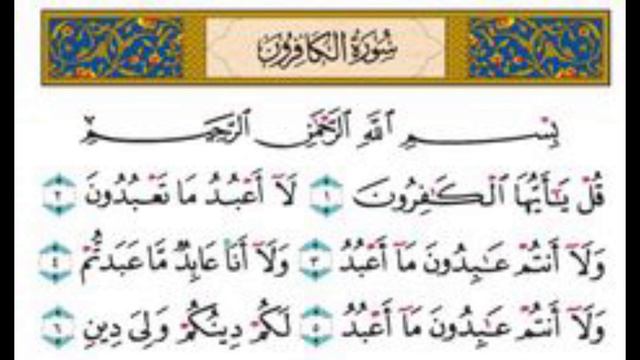 سُورَةُ الكَافِرُونَ
بِسْمِ اللَّهِ الرَّحْمَٰنِ الرَّحِيمِ
قُلْ يَٰٓأَيُّهَا الْكَٰفِرُونَ ١ لَآ أَعْبُدُ مَا تَعْبُدُونَ ٢
وَلَآ أَنتُمْ عَٰبِدُونَ مَآ أَعْبُدُ ٣ وَلَآ أَنَا۠ عَابِدٌ مَّا عَبَدتُّمْ ٤
وَلَآ أَنتُمْ عَٰبِدُونَ مَآ أَعْبُدُ ٥ لَكُمْ دِينُكُمْ وَلِيَ دِينِ ٦